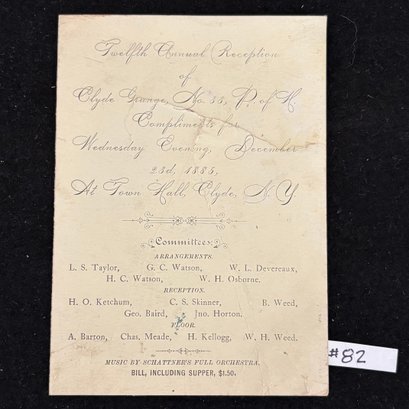 Twelfth Annual Reception
of
Clyde Grange, No. 33, P. of H.
Compliments for
Wednesday Evening, December
23d, 1885,
At Town Hall, Clyde, N.Y
Committees.
ARRANGEMENTS.
L. S. Taylor, G. C. Watson, W. L. Devereaux,
H. C. Watson, W. H. Osborne.
RECEPTION.
H. O. Ketchum, C. S. Skinner, B. Weed,
Geo. Baird, Jno. Horton.
FLOOR.
A. Barton, Chas. Meade, H. Kellogg, W. H. Weed.
MUSIC BY SCHATTNER'S FULL ORCHESTRA.
BILL, INCLUDING SUPPER, $1.50.
#82